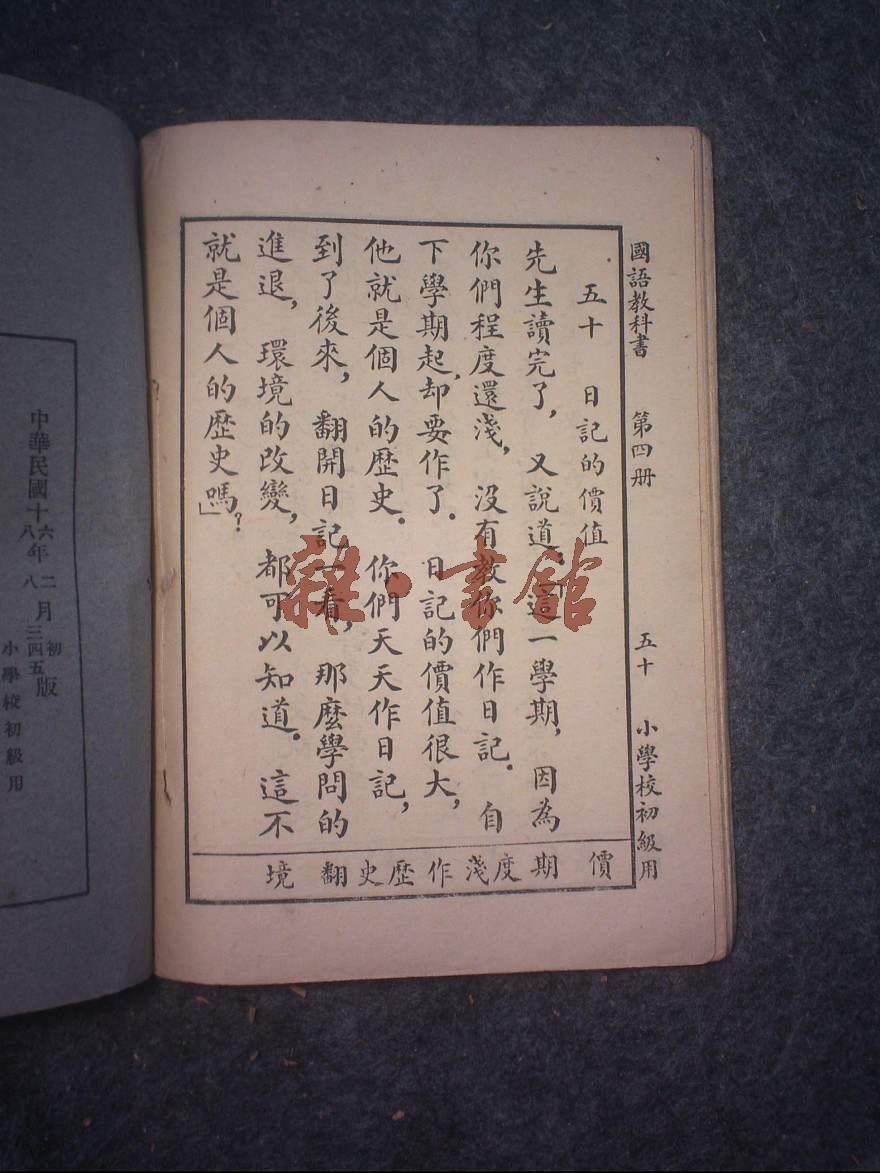 國語教科書 第四册 五十 小學校初級用
五十 日記的價值
先生讀完了，又說道：「這一學期，因為
你們程度還淺，沒有教你們作日記。自
下學期起，却要作了。日記的價值很大，
他就是個人的歷史。你們天天作日記，
到了後來，翻開日記一看，那麼學問的
進退，環境的改變，都可以知道。這不
就是個人的歷史嗎？」
價 期 度 淺 作 歷 史 翻 境
雜·書館
中華民國十六年二月初版
八年八 三四五
小學校初級用